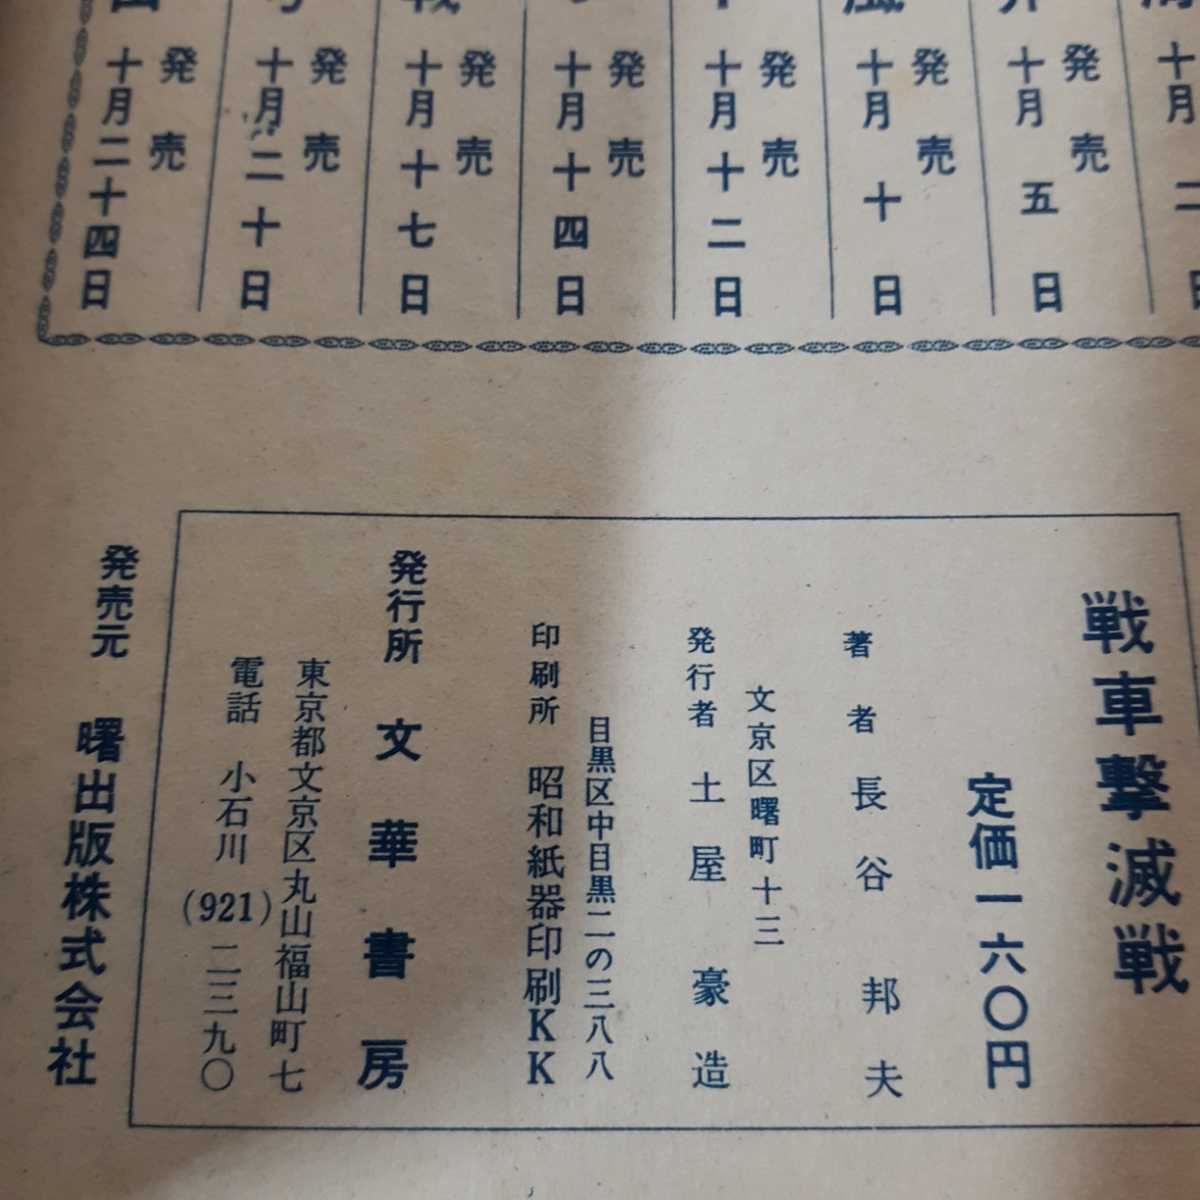 十月二日
発売
十月五日
発売
十月十日
発売
十月十二日
発売
十月十四日
発売
十月十七日
発売
十月二十日
発売
十月二十四日
戦車撃滅戦
定価一六〇円
著者 長谷邦夫
文京区曙町十三
発行者 土屋豪造
目黒区中目黒二の三八八
印刷所 昭和紙器印刷KK
発行所 文華書房
東京都文京区丸山福山町七
電話 小石川(921)二三九〇
発売元 曙出版株式会社